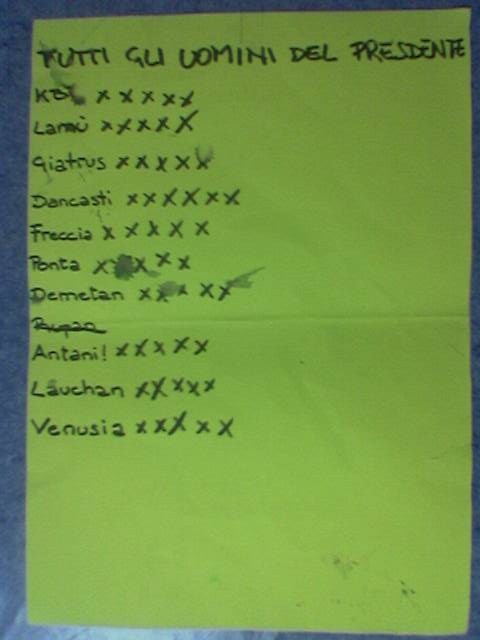 TUTTI GLI UOMINI DEL PRESDENTE
x x x x x
Lamù x x x x x
Giatrus x x x x x
Dancasti x x x x x x
Freccia x x x x x
Ponta x x x x x
Demetan x x x x x
Rupan
Antani! x x x x x
Läuchan x x x x x
Venusia x x x x x